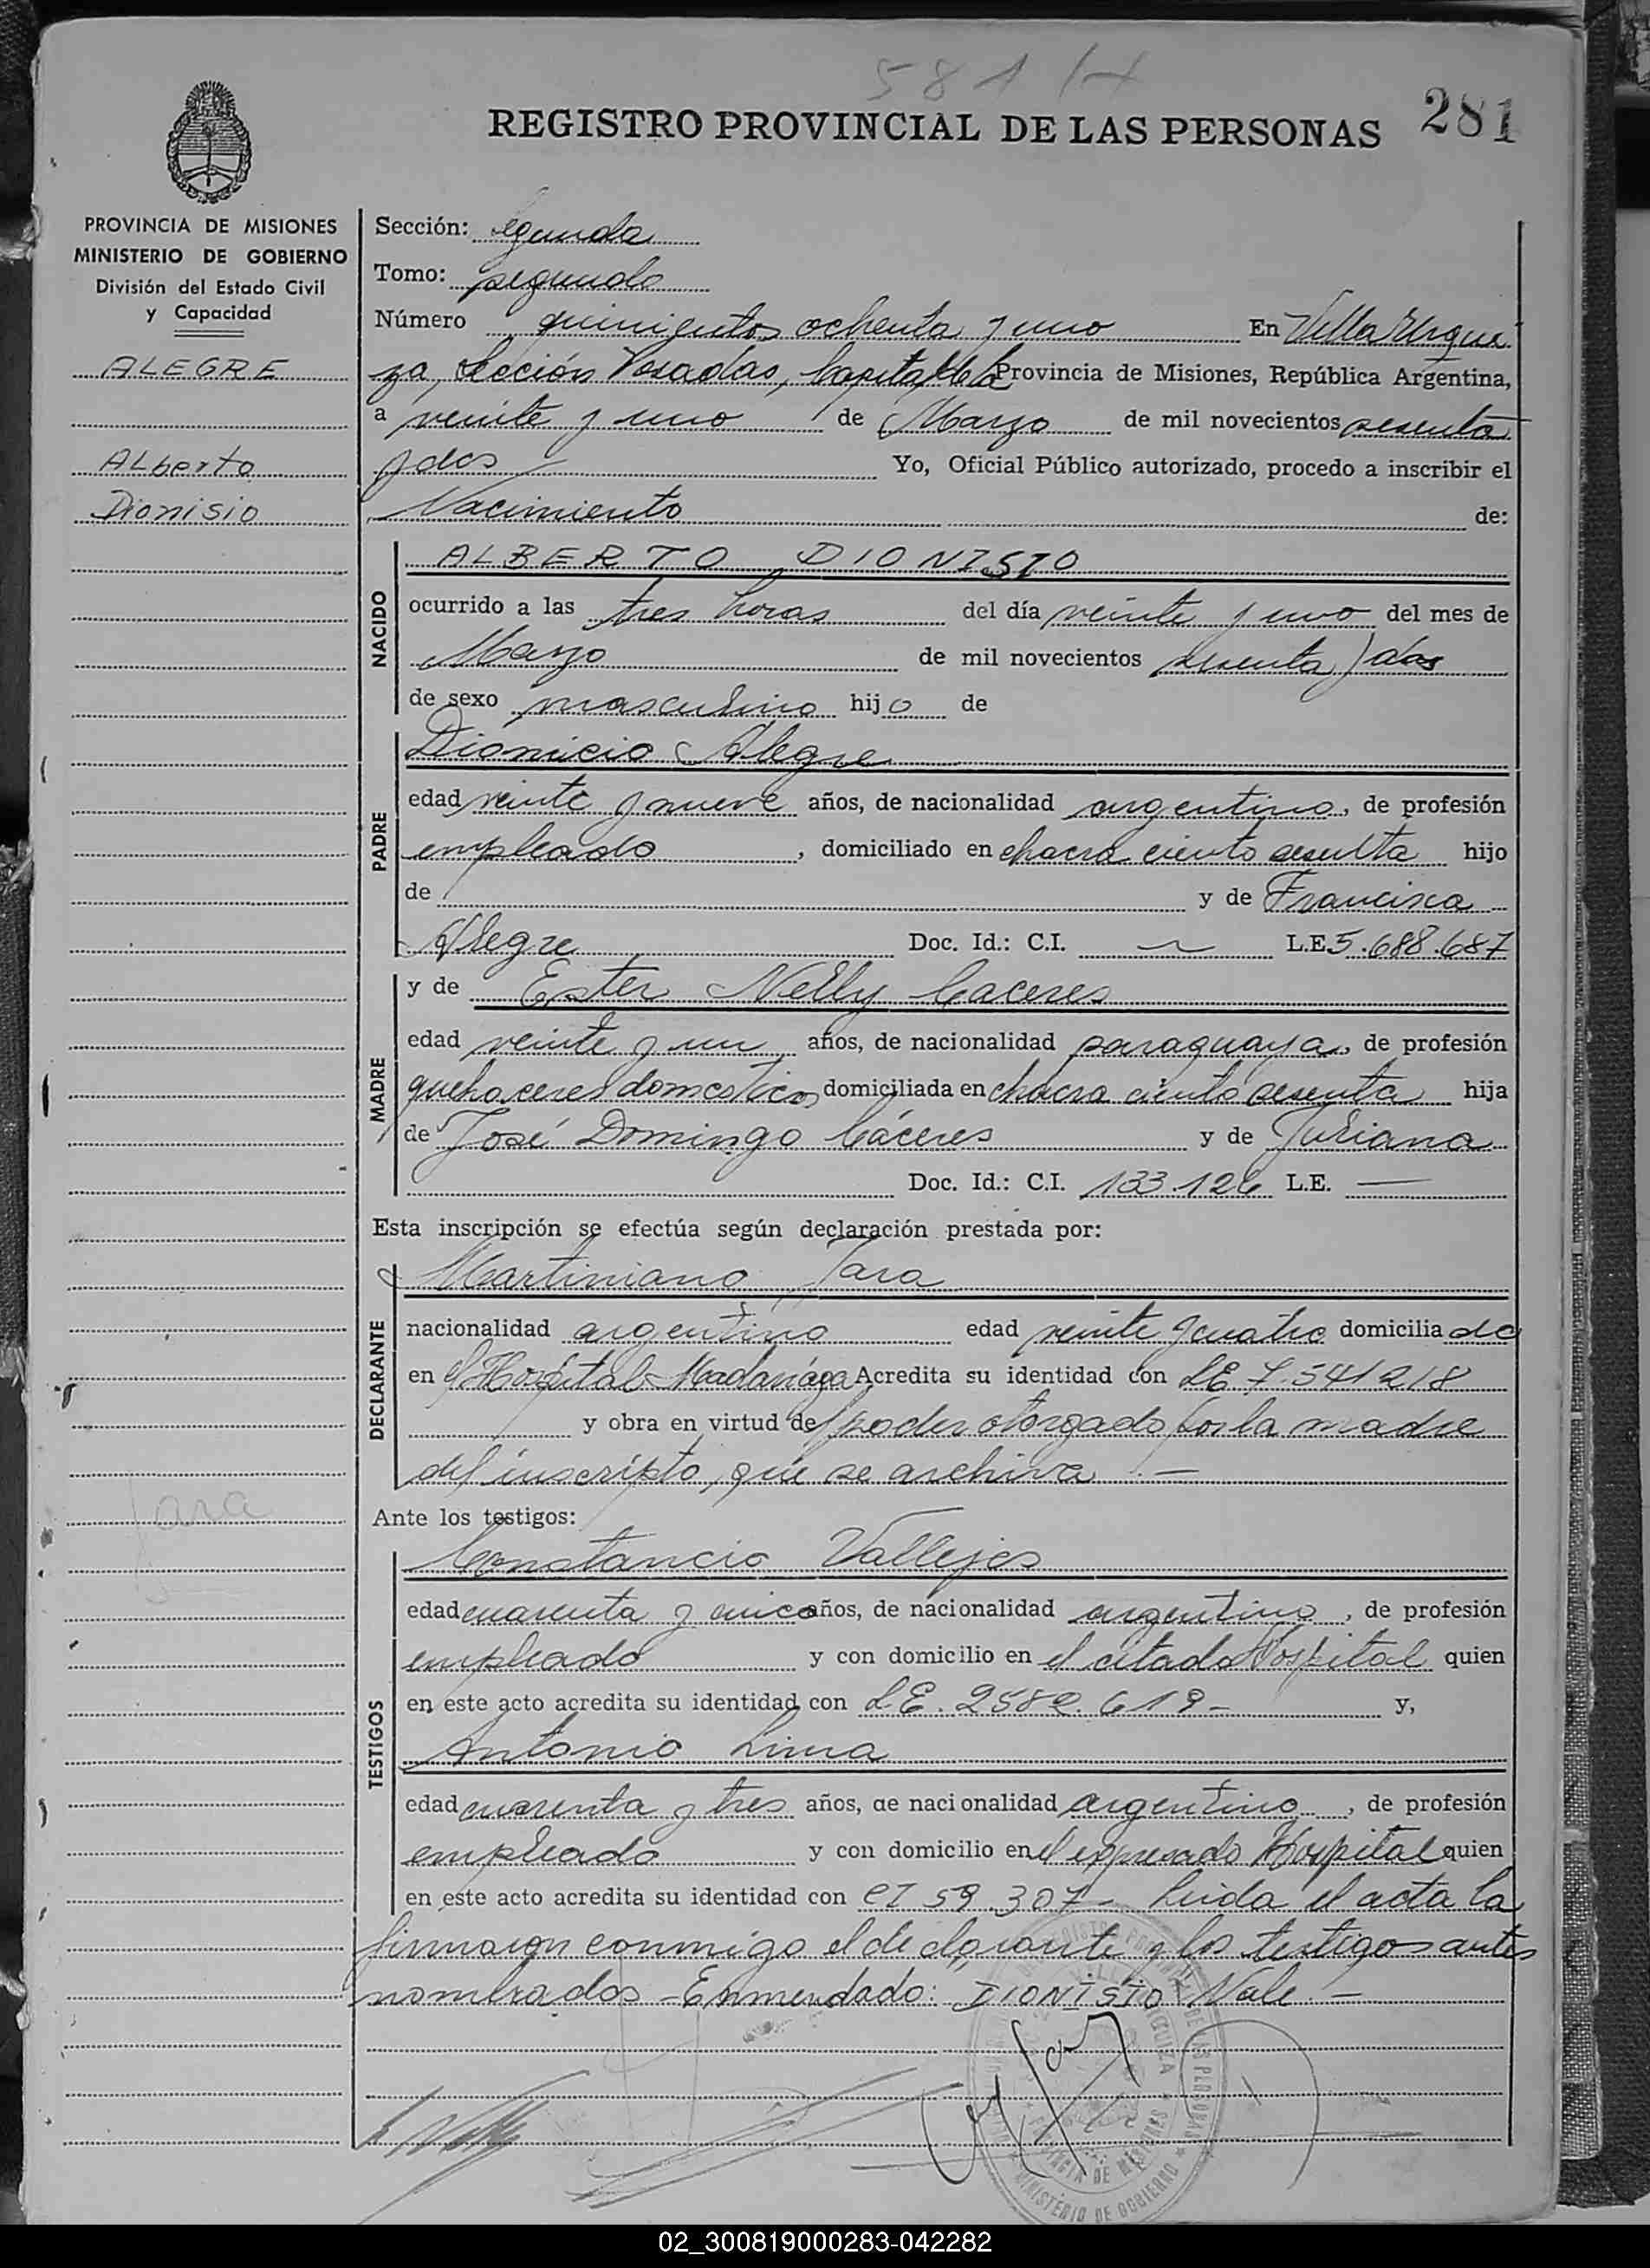 581 /
REGISTRO PROVINCIAL DE LAS PERSONAS 281
PROVINCIA DE MISIONES
MINISTERIO DE GOBIERNO
División del Estado Civil
y Capacidad
ALEGRE
Alberto
Dionisio
Jara
Sección: segunda
Tomo: segundo
Número quinientos ochenta y uno En Villa Urqui
za, Sección Posadas, Capital de la Provincia de Misiones, República Argentina,
a veinte y uno de Marzo de mil novecientos sesenta
y dos Yo, Oficial Público autorizado, procedo a inscribir el
Nacimiento de:
NACIDO
ALBERTO DIONISIO
ocurrido a las tres horas del día veinte y uno del mes de
Marzo de mil novecientos sesenta y dos
de sexo masculino hijo de
PADRE
Dionicio Alegre
edad veinte y nueve años, de nacionalidad argentino, de profesión
empleado, domiciliado en chacra ciento sesenta hijo
de y de Francisca
Alegre Doc. Id.: C.I. L.E. 5.688.687
MADRE
y de Ester Nelly Caceres
edad veinte y un años, de nacionalidad paraguaya, de profesión
quehaceres domesticos domiciliada en chacra ciento sesenta hija
de José Domingo Cáceres y de Juliana
Doc. Id.: C.I. 133.126 L.E. —
Esta inscripción se efectúa según declaración prestada por:
DECLARANTE
Martiniano Jara
nacionalidad argentino edad veinte y cuatro domiciliado
en el Hospital Madariaga Acredita su identidad con LE 7.541218
y obra en virtud del poder otorgado por la madre
del inscripto, que se archiva. —
Ante los testigos:
TESTIGOS
Constancio Vallejos
edad cuarenta y cinco años, de nacionalidad argentino, de profesión
empleado y con domicilio en el citado Hospital quien
en este acto acredita su identidad con L.E. 2582.619- y,
Antonio Lima
edad cuarenta y tres años, de nacionalidad argentino, de profesión
empleado y con domicilio en el expresado Hospital quien
en este acto acredita su identidad con CI 59.307- Leida el acta la
firmaron conmigo el declarante y los testigos antes
nombrados - Enmendado: DIONISIO Vale. —
PROVINCIA DE MISIONES
MINISTERIO DE GOBIERNO
02_300819000283-042282